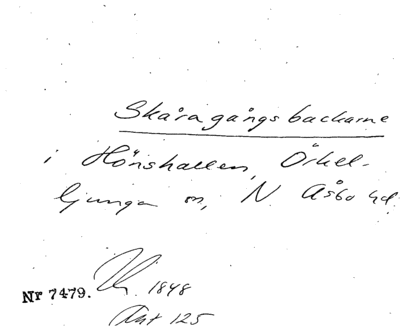 Skåragångsbackarne
i Hönshallen, Örkel-
ljunga sn, N. Åsbo hd.
Nr 7479.
1848
Akt 125